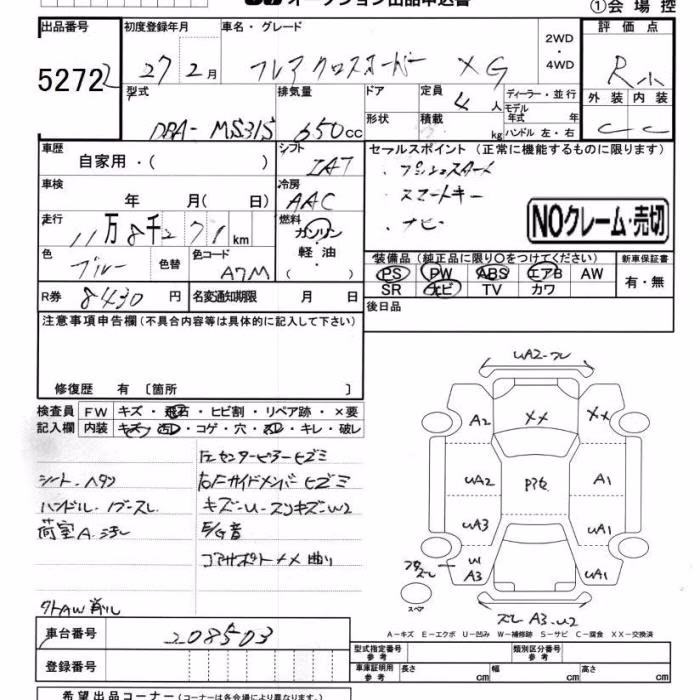 オークション出品申込書
①会場控
出品番号
52722
初度登録年月
27 2月
車名・グレード
フレア クロスオーバー XG
2WD
・
4WD
評価点
R小
外装 内装
C C
型式
DBA- MS31S
排気量
650cc
ドア
形状
定員
4人
積載
kg
ディーラー・並行
モデル
年式 年
ハンドル 左・右
車歴
自家用・( )
シフト
IAT
車検
年 月( 日)
冷房
AAC
走行
11万8千271km
燃料
ガソリン
・
軽油
・
( )
色
ブルー
色替
色コード
A7M
R券 8430円
名変通知期限 月 日
セールスポイント (正常に機能するものに限ります)
・プッシュスタート
・スマートキー
・ナビ
NOクレーム・売切
装備品 (純正品に限り〇をつけてください)
PS PW ABS エアB AW
SR ナビ TV カワ
新車保証書
有・無
後日品
注意事項申告欄 (不具合内容等は具体的に記入して下さい)
修復歴 有 〔箇所 〕
検査員
記入欄
FW キズ・飛石・ヒビ割・リペア跡・×要
内装 キズ・凹・コゲ・穴・汚レ・キレ・破レ
左センターピラーヒズミ
シート・ヘタリ
右Fサイドメンバーヒズミ
ハンドル・ノブスレ
キズ-U-スリキズ-W2
荷室A・汚レ
E/G音
コアサポート××曲り
タイヤAW削レ
UA2-フレ
A2
××
××
UA2
A1
UA3
UA1
W
A3
UA1
スペア
スレA3-U2
A-キズ E-エクボ U-凹み W-補修跡 S-サビ C-腐食 XX-交換済
車台番号
208503
登録番号
型式指定番号
参考
類別区分番号
参考
車庫証明用
参考
長さ cm
幅 cm
高さ cm
希望出品コーナー(コーナーは各会場により異なります)